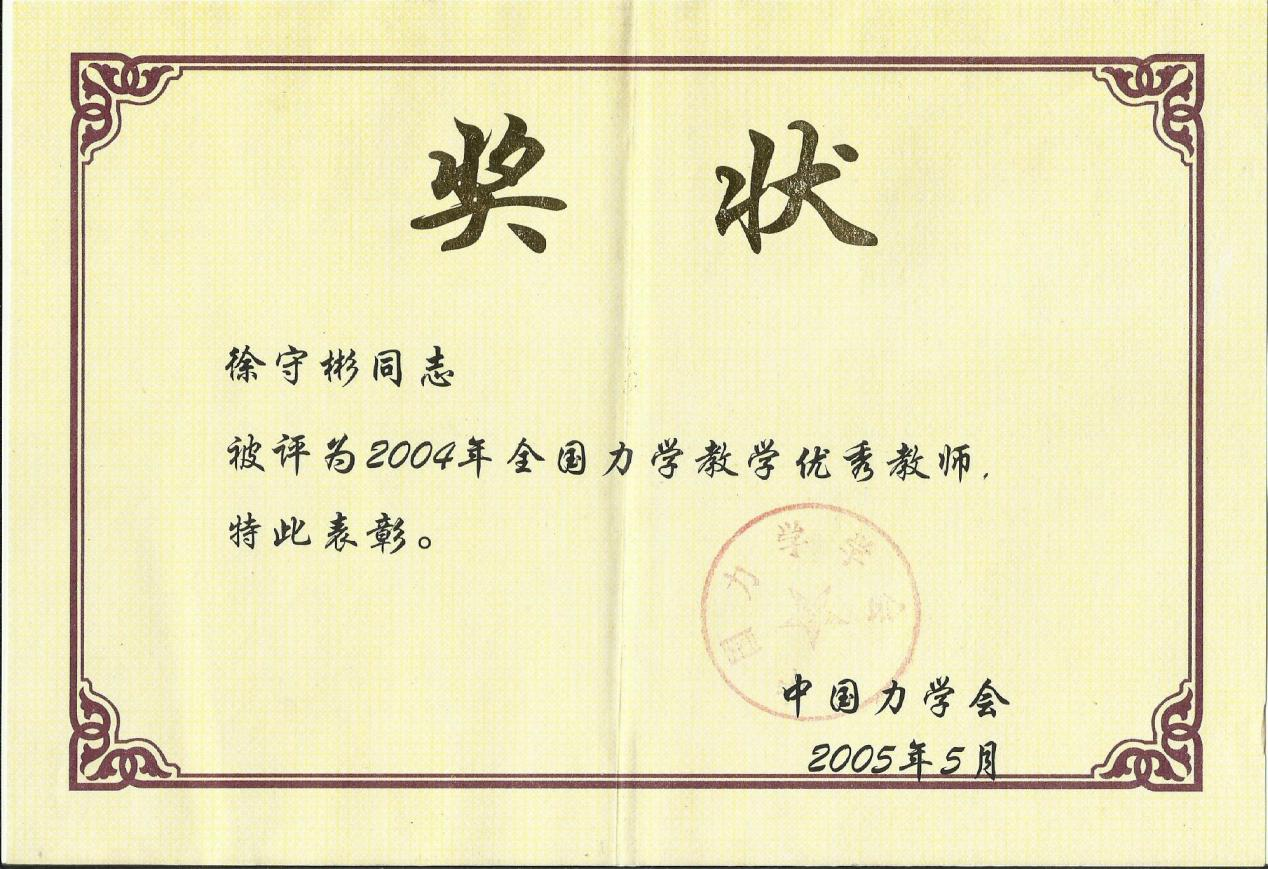 奖状
徐守彬同志
被评为2004年全国力学教学优秀教师,
特此表彰。
国力学学会
中国力学会
2005年5月